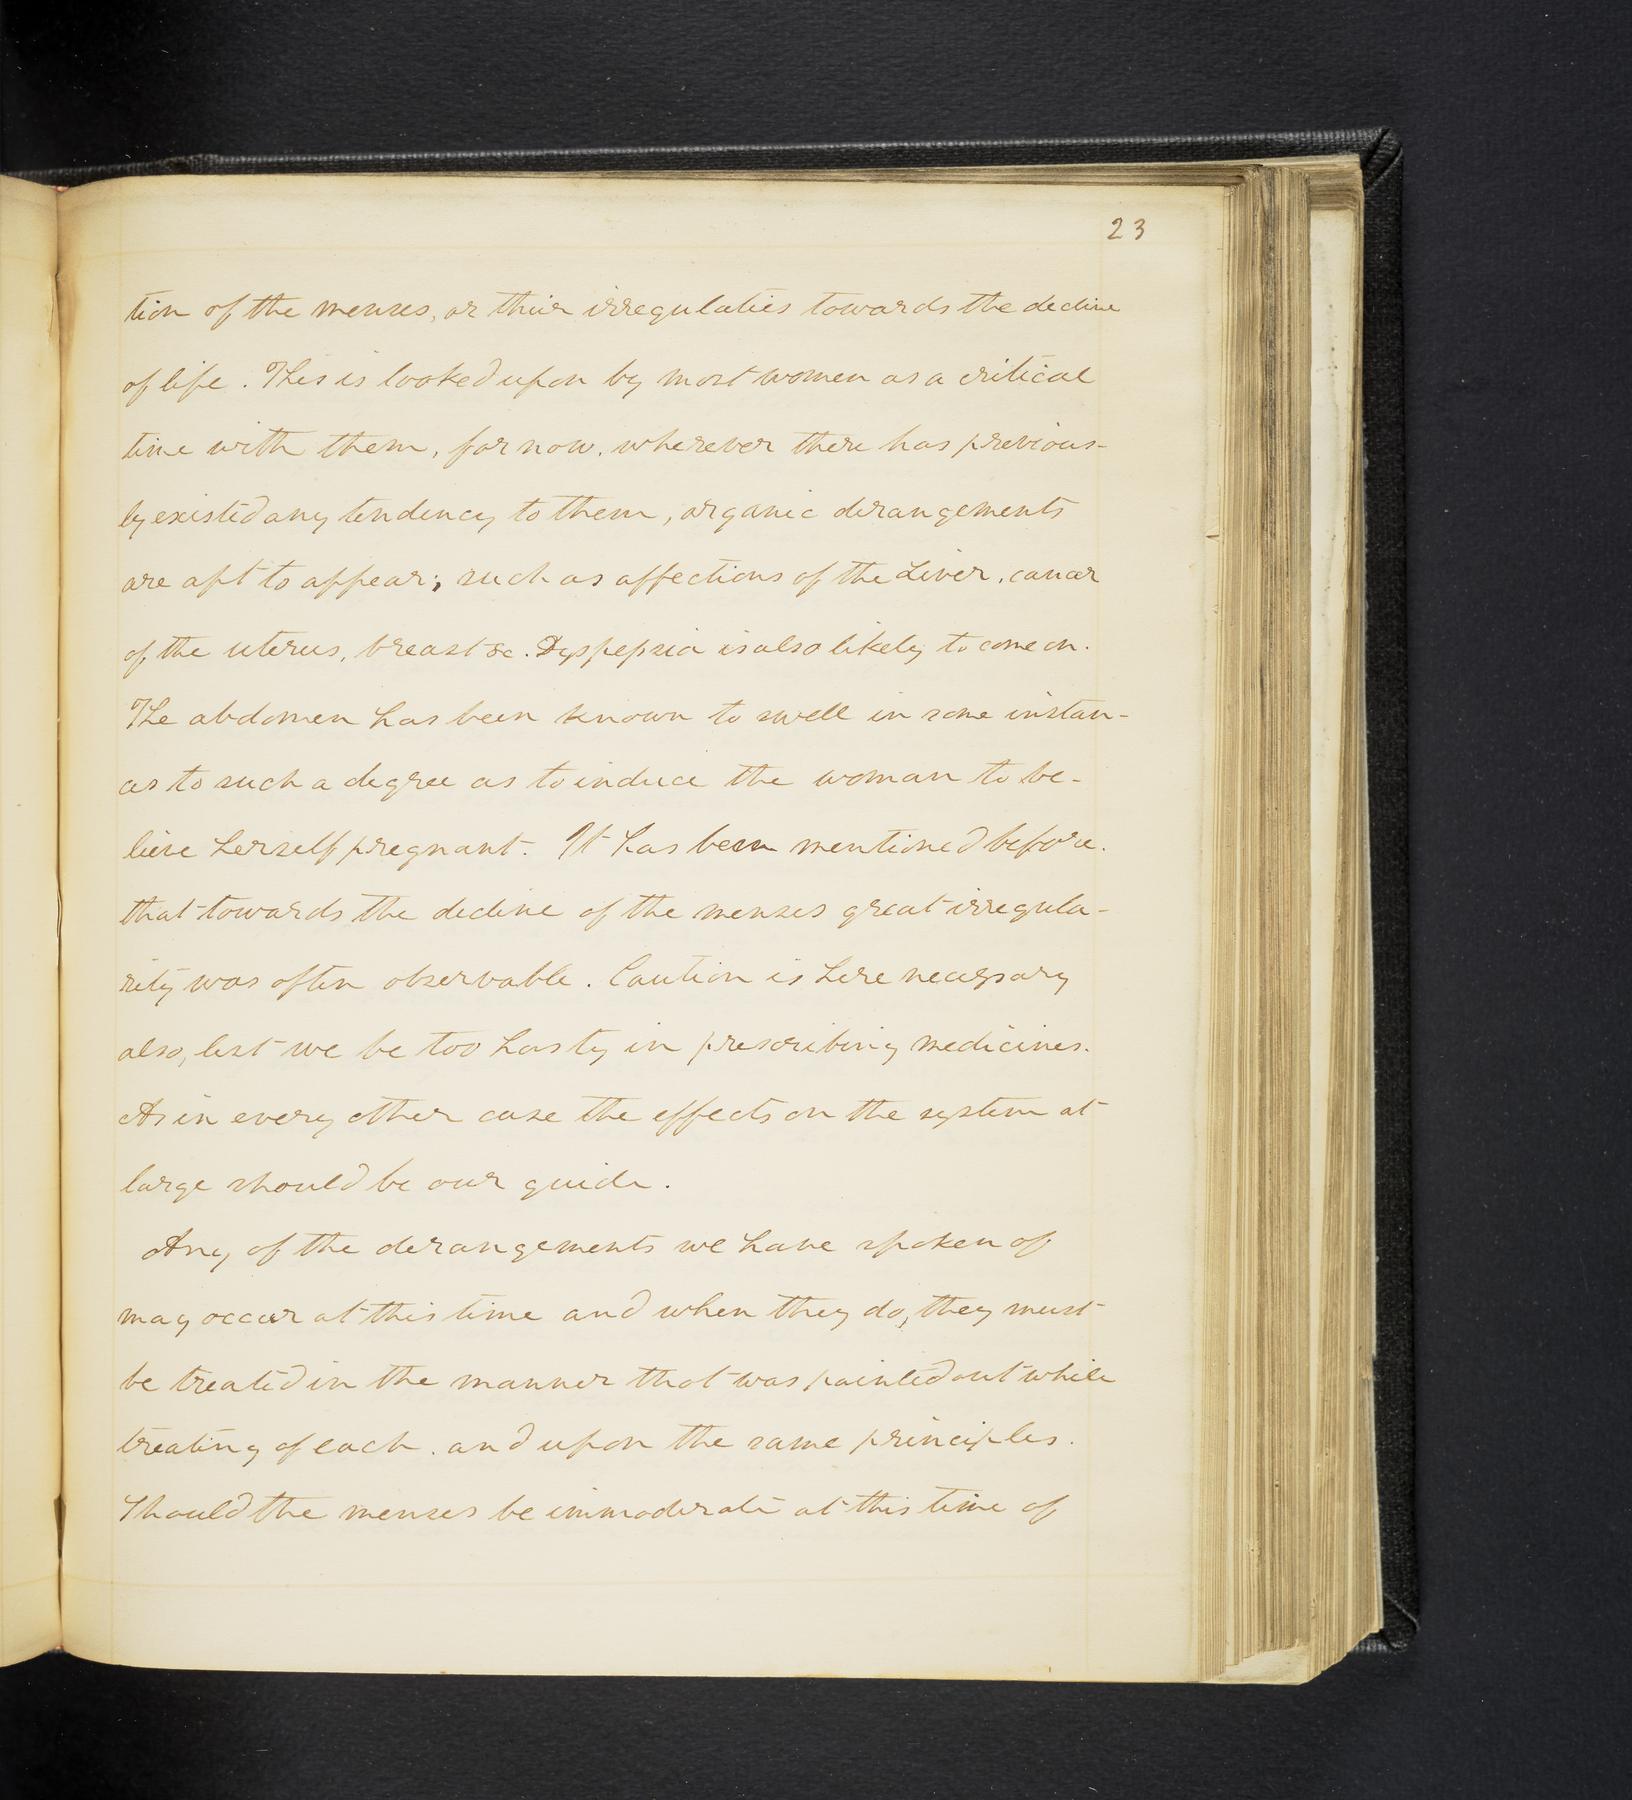 23
tion of the menses, or their irregulaties towards the decline
of life. This is looked upon by most women as a critical
time with them, for now, wherever there has previous-
ly existed any tendency to them, organic derangements
are apt to appear; such as affections of the Liver, cancer
of the uterus, breast &c. Dyspepsia is also likely to come on.
The abdomen has been known to swell in some instan-
ces to such a degree as to induce the woman to be-
lieve herself pregnant. It has been mentioned before.
that towards the decline of the menses great irregula-
rity was often observable. Caution is here necessary
also, lest we be too hasty in prescribing medicines.
As in every other case the effects on the system at
large should be our guide.
Any of the derangements we have spoken of
may occur at this time and when they do, they must
be treated in the manner that was pointed out while
treating of each. and upon the same principles.
Should the menses be immoderate at this time of